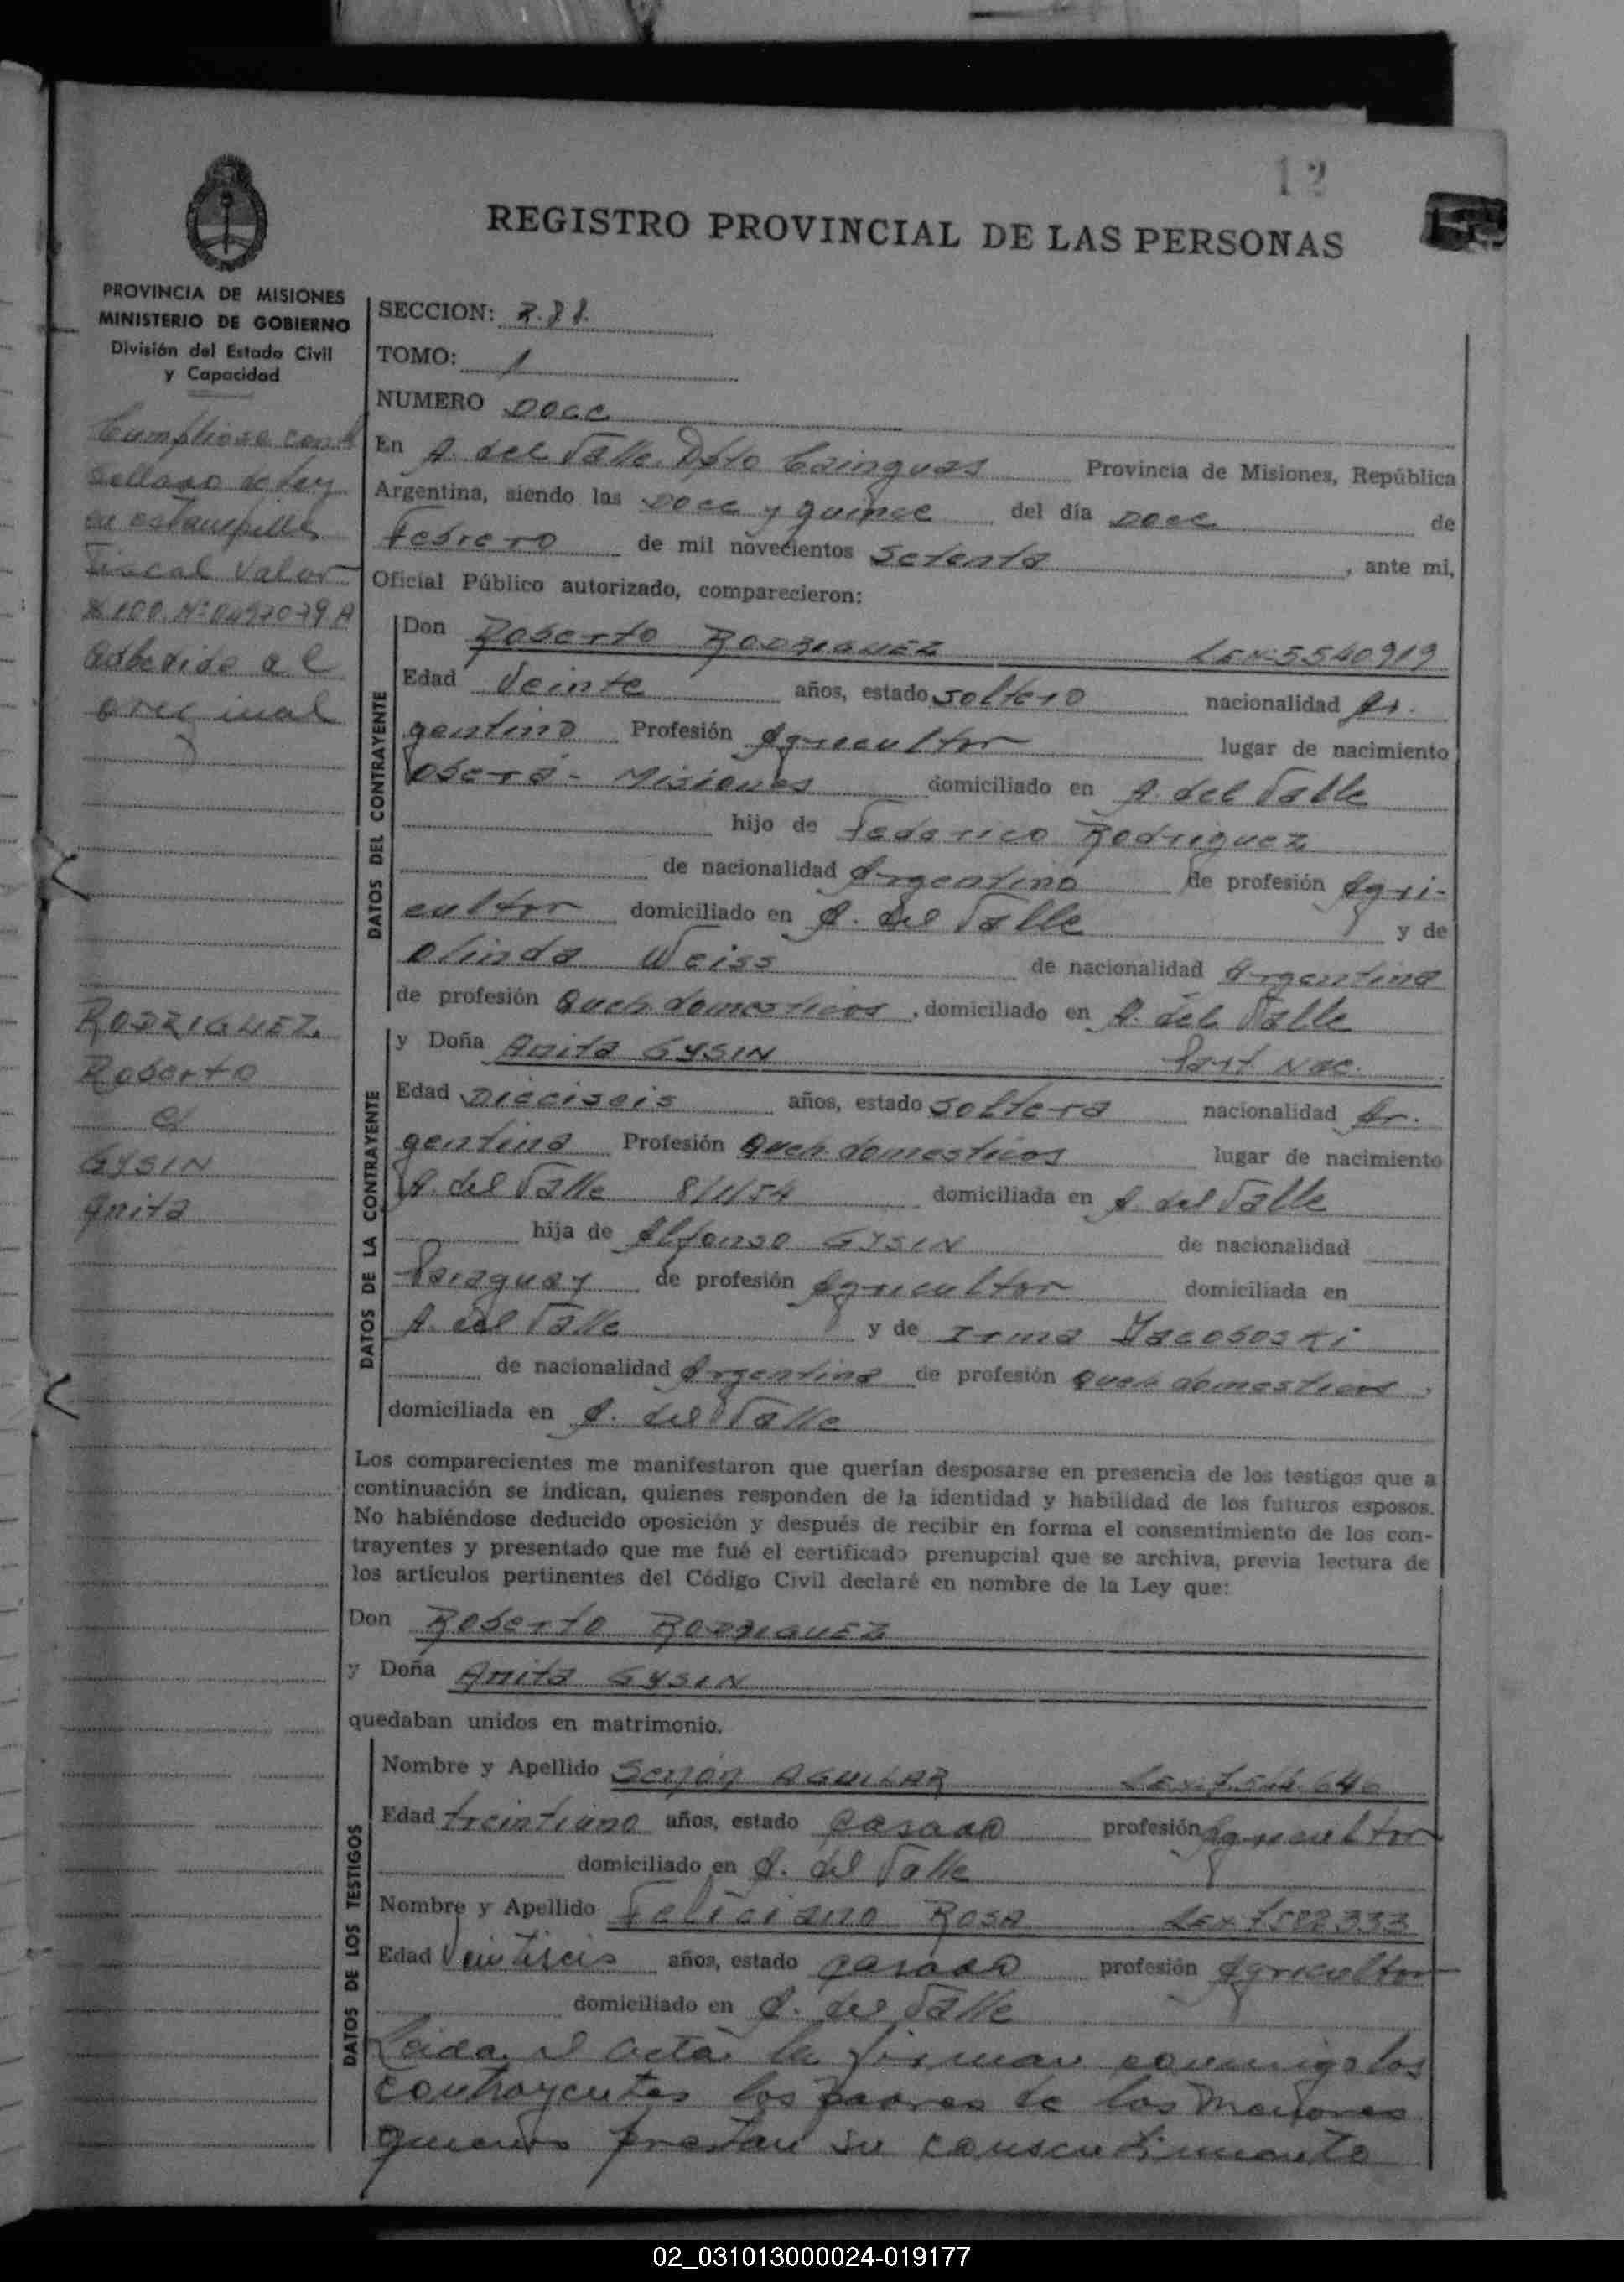 12
REGISTRO PROVINCIAL DE LAS PERSONAS
PROVINCIA DE MISIONES
MINISTERIO DE GOBIERNO
División del Estado Civil
y Capacidad
Cumpliose con el
sellado de Ley
en estampilla
Fiscal Valor
$ 100. Nº 0497079 A
adherido al
original
RODRIGUEZ
Roberto
c/
GYSIN
Anita
SECCION:
TOMO: 1
NUMERO DOCE
En A. del Valle Dpto Cainguas Provincia de Misiones, República
Argentina, siendo las DOCE y quince del día DOCE de
Febrero de mil novecientos Setenta, ante mi,
Oficial Público autorizado, comparecieron:
DATOS DEL CONTRAYENTE
Don Roberto RODRIGUEZ L.E.Nº 5540919
Edad Veinte años, estado soltero nacionalidad Ar-
gentino Profesión Agricultor lugar de nacimiento
Oberá - Misiones domiciliado en A. del Valle
hijo de Federico Rodriguez
de nacionalidad Argentino de profesión Agri-
cultor domiciliado en A. del Valle y de
Olinda Weiss de nacionalidad Argentina
de profesión Queh. domesticos, domiciliado en A. del Valle
DATOS DE LA CONTRAYENTE
y Doña Anita GYSIN Part. Nac.
Edad Dieciseis años, estado soltera nacionalidad Ar-
gentina Profesión Queh domesticos lugar de nacimiento
A. del Valle 8/1/54 domiciliada en A. del Valle
hija de Alfonso GYSIN de nacionalidad
Paraguay de profesión Agricultor domiciliada en
A. del Valle y de Irma Yacoboski
de nacionalidad Argentina de profesión Queh domesticos,
domiciliada en A. del Valle
Los comparecientes me manifestaron que querían desposarse en presencia de los testigos que a
continuación se indican, quienes responden de la identidad y habilidad de los futuros esposos.
No habiéndose deducido oposición y después de recibir en forma el consentimiento de los con-
trayentes y presentado que me fué el certificado prenupcial que se archiva, previa lectura de
los artículos pertinentes del Código Civil declaré en nombre de la Ley que:
Don Roberto RODRIGUEZ
y Doña Anita GYSIN
quedaban unidos en matrimonio.
DATOS DE LOS TESTIGOS
Nombre y Apellido AGUILAR
Edad treintiuno años, estado casado profesión Agricultor
domiciliado en A. del Valle
Nombre y Apellido Feliciano ROSA L.E.Nº 7582333
Edad Veintiseis años, estado casado profesión Agricultor
domiciliado en A. del Valle
Leida el acta la firman conmigo los
contrayentes los padres de los menores
quienes prestan su consentimiento
02_031013000024-019177